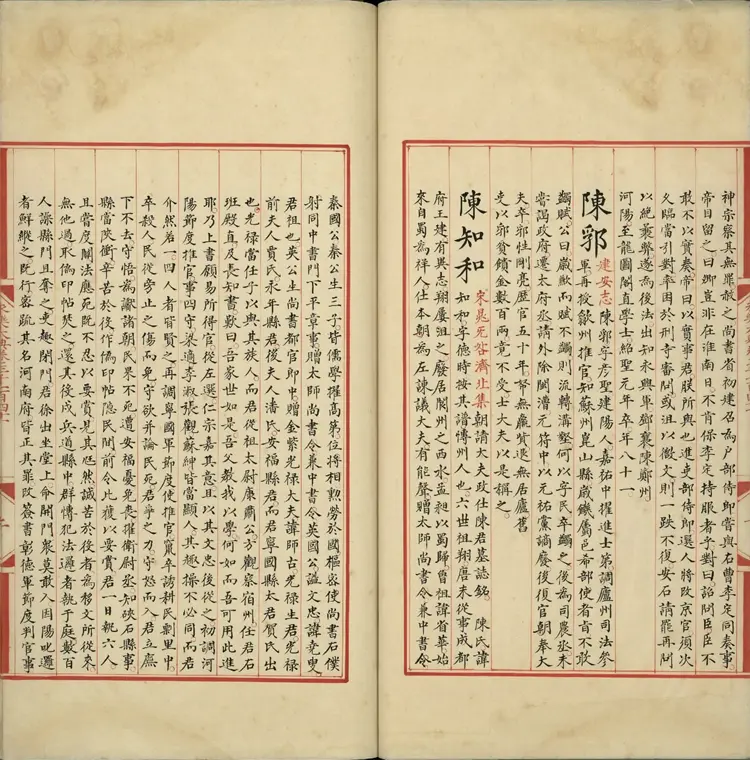 神宗察其無罪敢之尚書省初建召為户部侍郎嘗與右曹李定同奏事
帝日留之曰卿豈非在淮南日不肯保李定持服者乎對曰諂問臣臣不
敢不以實奏帝曰以實事君朕所與也進吏部侍郎選人將改京官須次
久臨當引對率困於刑寺審問或沮以微文則一跌不復安石請罷再問
以絕蔽弊遂為後法出知永興軍鄧襄陳鄭州
河陽至龍圖閣直學士紹聖元年卒年八十一
陳郛 建安志 陳郛字彥聖建陽人嘉祐中擢進士第調廬州司法參
軍再授歙州推官知蘇州崑山縣歲饑屬邑希部使者肯不敢
蠲賦公曰歲歉而賦不蠲則流轉溝壑何以字民卒蠲之後為司農丞未
嘗謁政府遷太府丞請外除開漕元符中以元祐黨謫廢後復官朝奉大
夫卒郛性剛亮歷官五十年帑無羸貲退無居廬舊
吏以郛貧饋金數百兩竟不受士大夫以是稱之
陳知和 宋晁无咎濟北集 朝請大夫政仕陳君墓誌銘 陳氏諱
知和字德時按其譜博州人也六世祖翔唐末從事成都
府王建有異志翔屢沮之居閬州之西水孟昶以蜀歸曾祖諱省華始
來自蜀為祥人仕本朝為左諫議大夫有能聲贈太師尚書令兼中書令
秦國公秦公生三子皆儒學擢高第位將相勲勞於國樞密使尚書右僕
射同中書門下平章事贈太師尚書令兼中書令英國公諡文忠諱堯叟
君祖也英公生尚書都官郎中贈金紫光祿大夫諱師古光祿生君光祿
前夫人賈氏永年縣君後夫人潘氏安福縣君而君寧國縣太君賀氏出
也光祿當任子以與其族人而君從祖太尉康肅公方觀察宿州任君右
班殿直及長知書歎曰吾家世如是吾父教我以學何如而吾可用此進
耶乃上書願易所得官從左選仁宗嘉其意且以其文忠後從之初調河
陽節度推官事四守梁適李淑張觀蘇紳皆當顯人其趣操不必同而君
介然若一四人者皆賢之再調寧國軍節度使推官嵐卒誘耕民劇里中
卒殺人民從旁止之傷而免守欲并論民死君爭之力守怒而入君立廡
下不去守悟為讞諸朝民果不死遷安福憂免喪擢衛尉丞知硤石縣事
縣當陝衝辛苦於役作僞印帖隱民間前令比獲以要賞君一日執六人
且嘗度關法應死既不忍以要賞見其尪然誠苦於後者為移文所從來
無他過取僞印帖焚之還其後戍兵道縣中群情犯法邏者執于庭數百
人譟縣門且奪之吏趣閉門君徐出坐堂上命開門衆莫敢入因陽叱邏
者解縱之既行密疏其名河南府皆正其罪改簽書彰德軍節度判官事